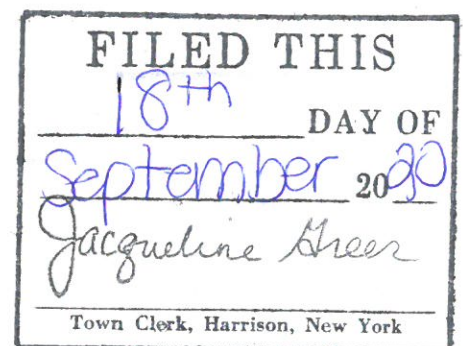 FILED THIS
18th DAY OF
September 2020
Jacqueline Greer
Town Clerk, Harrison, New York